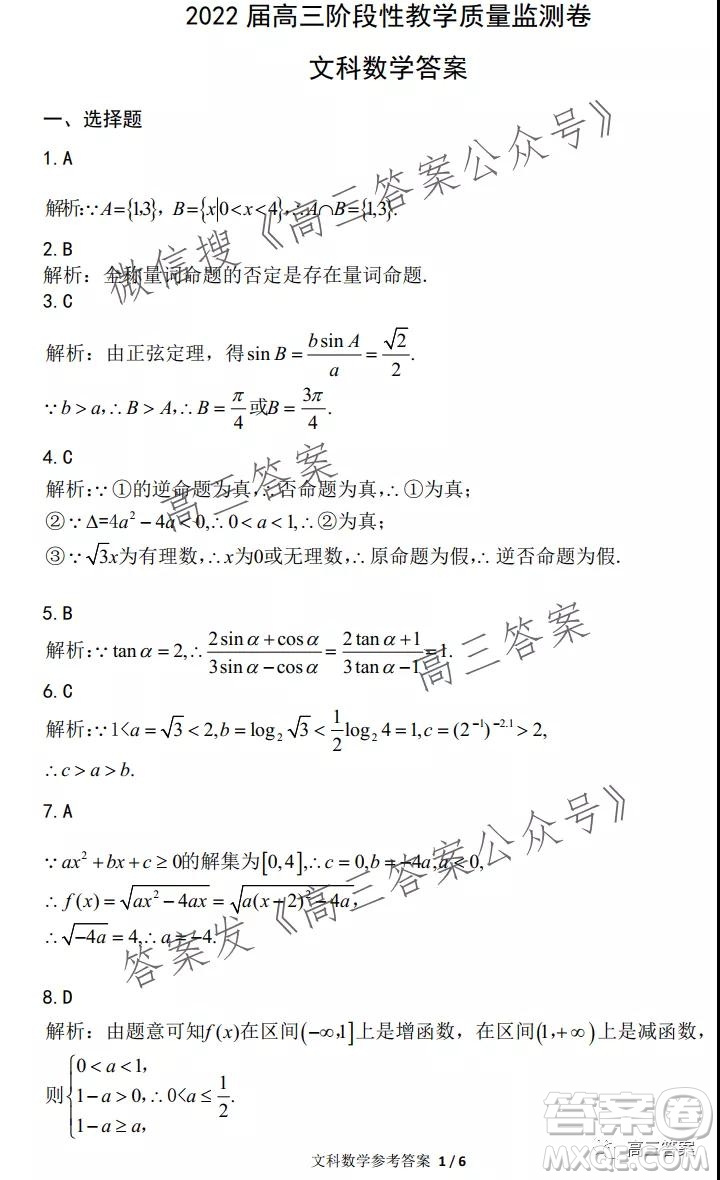 2022 届高三阶段性教学质量监测卷
文科数学答案
一、选择题
1.A
解析:∵A={1,3}, B={x|0<x<4},∴A∩B={1,3}.
2.B
解析：全称量词命题的否定是存在量词命题.
3.C
解析：由正弦定理，得 sin B = (b sin A)/a = √2/2.
∵b > a,∴B > A,∴B = π/4 或B = 3π/4.
4.C
解析：∵①的逆命题为真,∴否命题为真,∴①为真；
②∵Δ=4a²−4a<0,∴0<a<1,∴②为真；
③∵√3x为有理数,∴x为0或无理数,∴原命题为假,∴逆否命题为假.
5.B
解析：∵tan α = 2,∴(2sin α+cos α)/(3sin α−cos α) = (2tan α+1)/(3tan α−1) = 1.
6.C
解析：∵1<a = √3 < 2,b = log₂√3 < 1/2 log₂4 = 1,c = (2⁻¹)⁻²·¹ > 2,
∴c > a > b.
7.A
∵ax²+bx+c ≥ 0的解集为[0,4],∴c = 0,b = −4a,a < 0,
∴f(x) = √(ax²−4ax) = √(a(x−2)²−4a),
∴√(−4a) = 4,∴a = −4.
8.D
解析：由题意可知f(x)在区间(−∞,1]上是增函数，在区间(1,+∞)上是减函数，
则{0<a<1, 1−a>0, 1−a≥a, ∴0<a≤1/2.
文科数学参考答案 1 / 6
微信搜《高三答案公众号》
高三答案
高三答案
答案发《高三答案公众号》
高三答案
答案卷
MXQE.COM